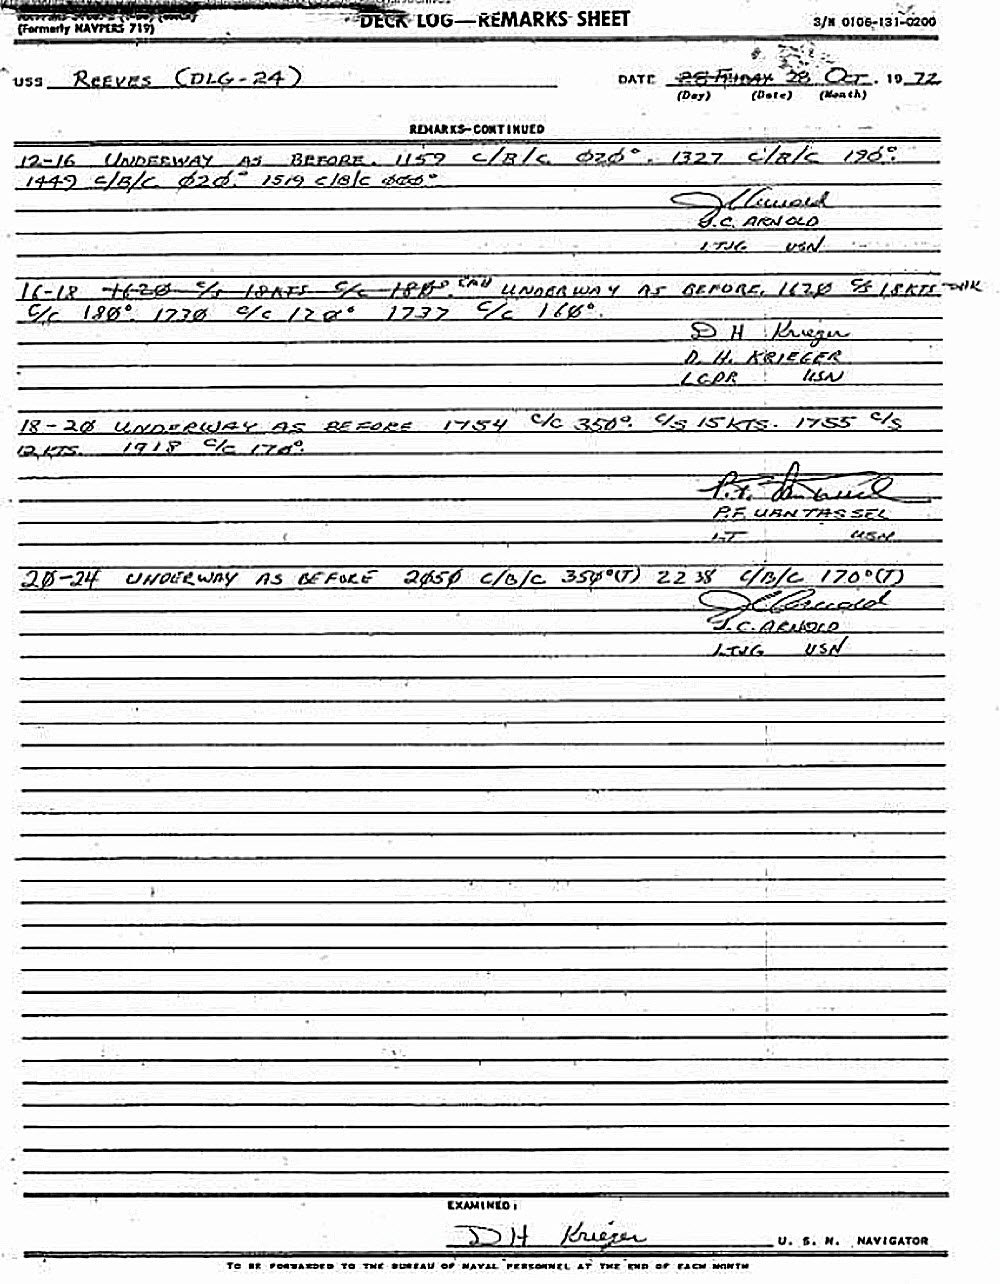 (Formerly NAVPERS 719)
DECK LOG—REMARKS SHEET
S/N 0106-131-0200
USS REEVES (DLG-24)
DATE 28 OCT. 19 72
(Day) (Date) (Month)
REMARKS—CONTINUED
12-16 UNDERWAY AS BEFORE. 1159 C/B/C Ø2Ø°. 1327 C/B/C 19Ø°.
1449 C/B/C Ø2Ø.° 1519 C/B/C ØØØ°
J C Arnold
J.C. ARNOLD
LTJG USN
16-18 162Ø C/S 18KTS C/C 18Ø° UNDERWAY AS BEFORE. 162Ø C/S 18KTS
C/C 18Ø°. 173Ø C/C 12Ø° 1737 C/C 16Ø°.
D H Krieger
D. H. KRIEGER
LCDR USN
18-2Ø UNDERWAY AS BEFORE 1754 C/C 35Ø°. C/S 15KTS. 1755 C/S
12KTS. 1918 C/C 17Ø°.
P.F. VanTassel
P.F. VANTASSEL
LT USN
2Ø-24 UNDERWAY AS BEFORE 2Ø5Ø C/B/C 35Ø°(T) 2238 C/B/C 17Ø°(T)
J C Arnold
J.C. ARNOLD
LTJG USN
EXAMINED:
D H Krieger U. S. N. NAVIGATOR
TO BE FORWARDED TO THE BUREAU OF NAVAL PERSONNEL AT THE END OF EACH MONTH